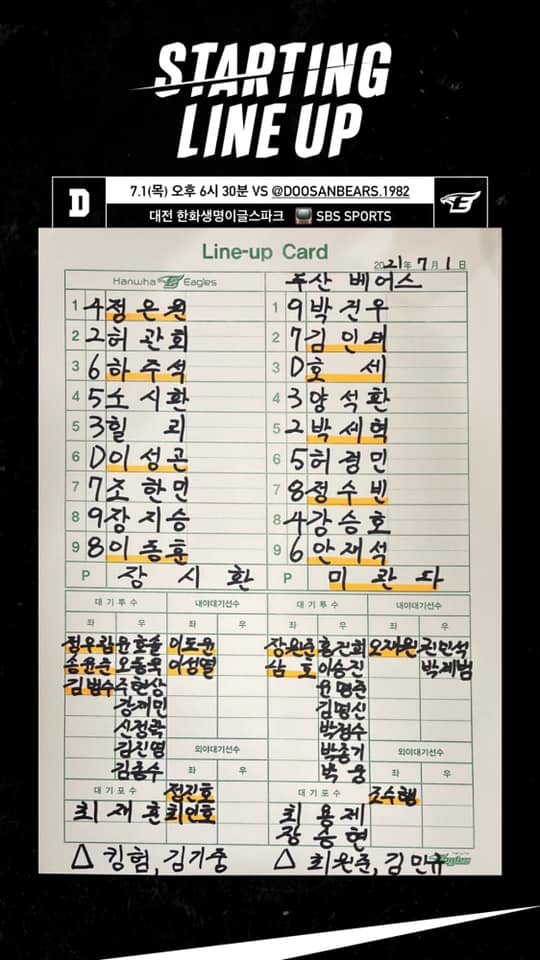 STARTING
LINE UP
D
7.1(목) 오후 6시 30분 VS @DOOSANBEARS.1982
대전 한화생명이글스파크 SBS SPORTS
E
Line-up Card
2021年 7月 1日
Hanwha Eagles 두산 베어스
1 4 정은원 1 9 박건우
2 2 허관회 2 7 김인태
3 6 하주석 3 D 호세
4 5 노시환 4 3 양석환
5 3 힐리 5 2 박세혁
6 D 이성곤 6 5 허경민
7 7 조한민 7 8 정수빈
8 9 장지승 8 4 강승호
9 8 이동훈 9 6 안재석
P 장시환 P 미란다
대기투수 내야대기선수 대기투수 내야대기선수
좌 우 좌 우 좌 우 좌 우
정우람 윤호솔 이도윤 장원준 홍건희 오재원 권민석
송윤준 오동욱 이성열 삼호 이승진 박계범
김범수 주현상 윤명준
강재민 김명신
신정락 박정수
김진영 외야대기선수 박종기 외야대기선수
김종수 좌 우 박웅 좌 우
대기포수 정진호 대기포수 조수행
최재훈 최인호 최용제
장승현
△ 킹험, 김기중 △ 최원준, 김민규
Eagles